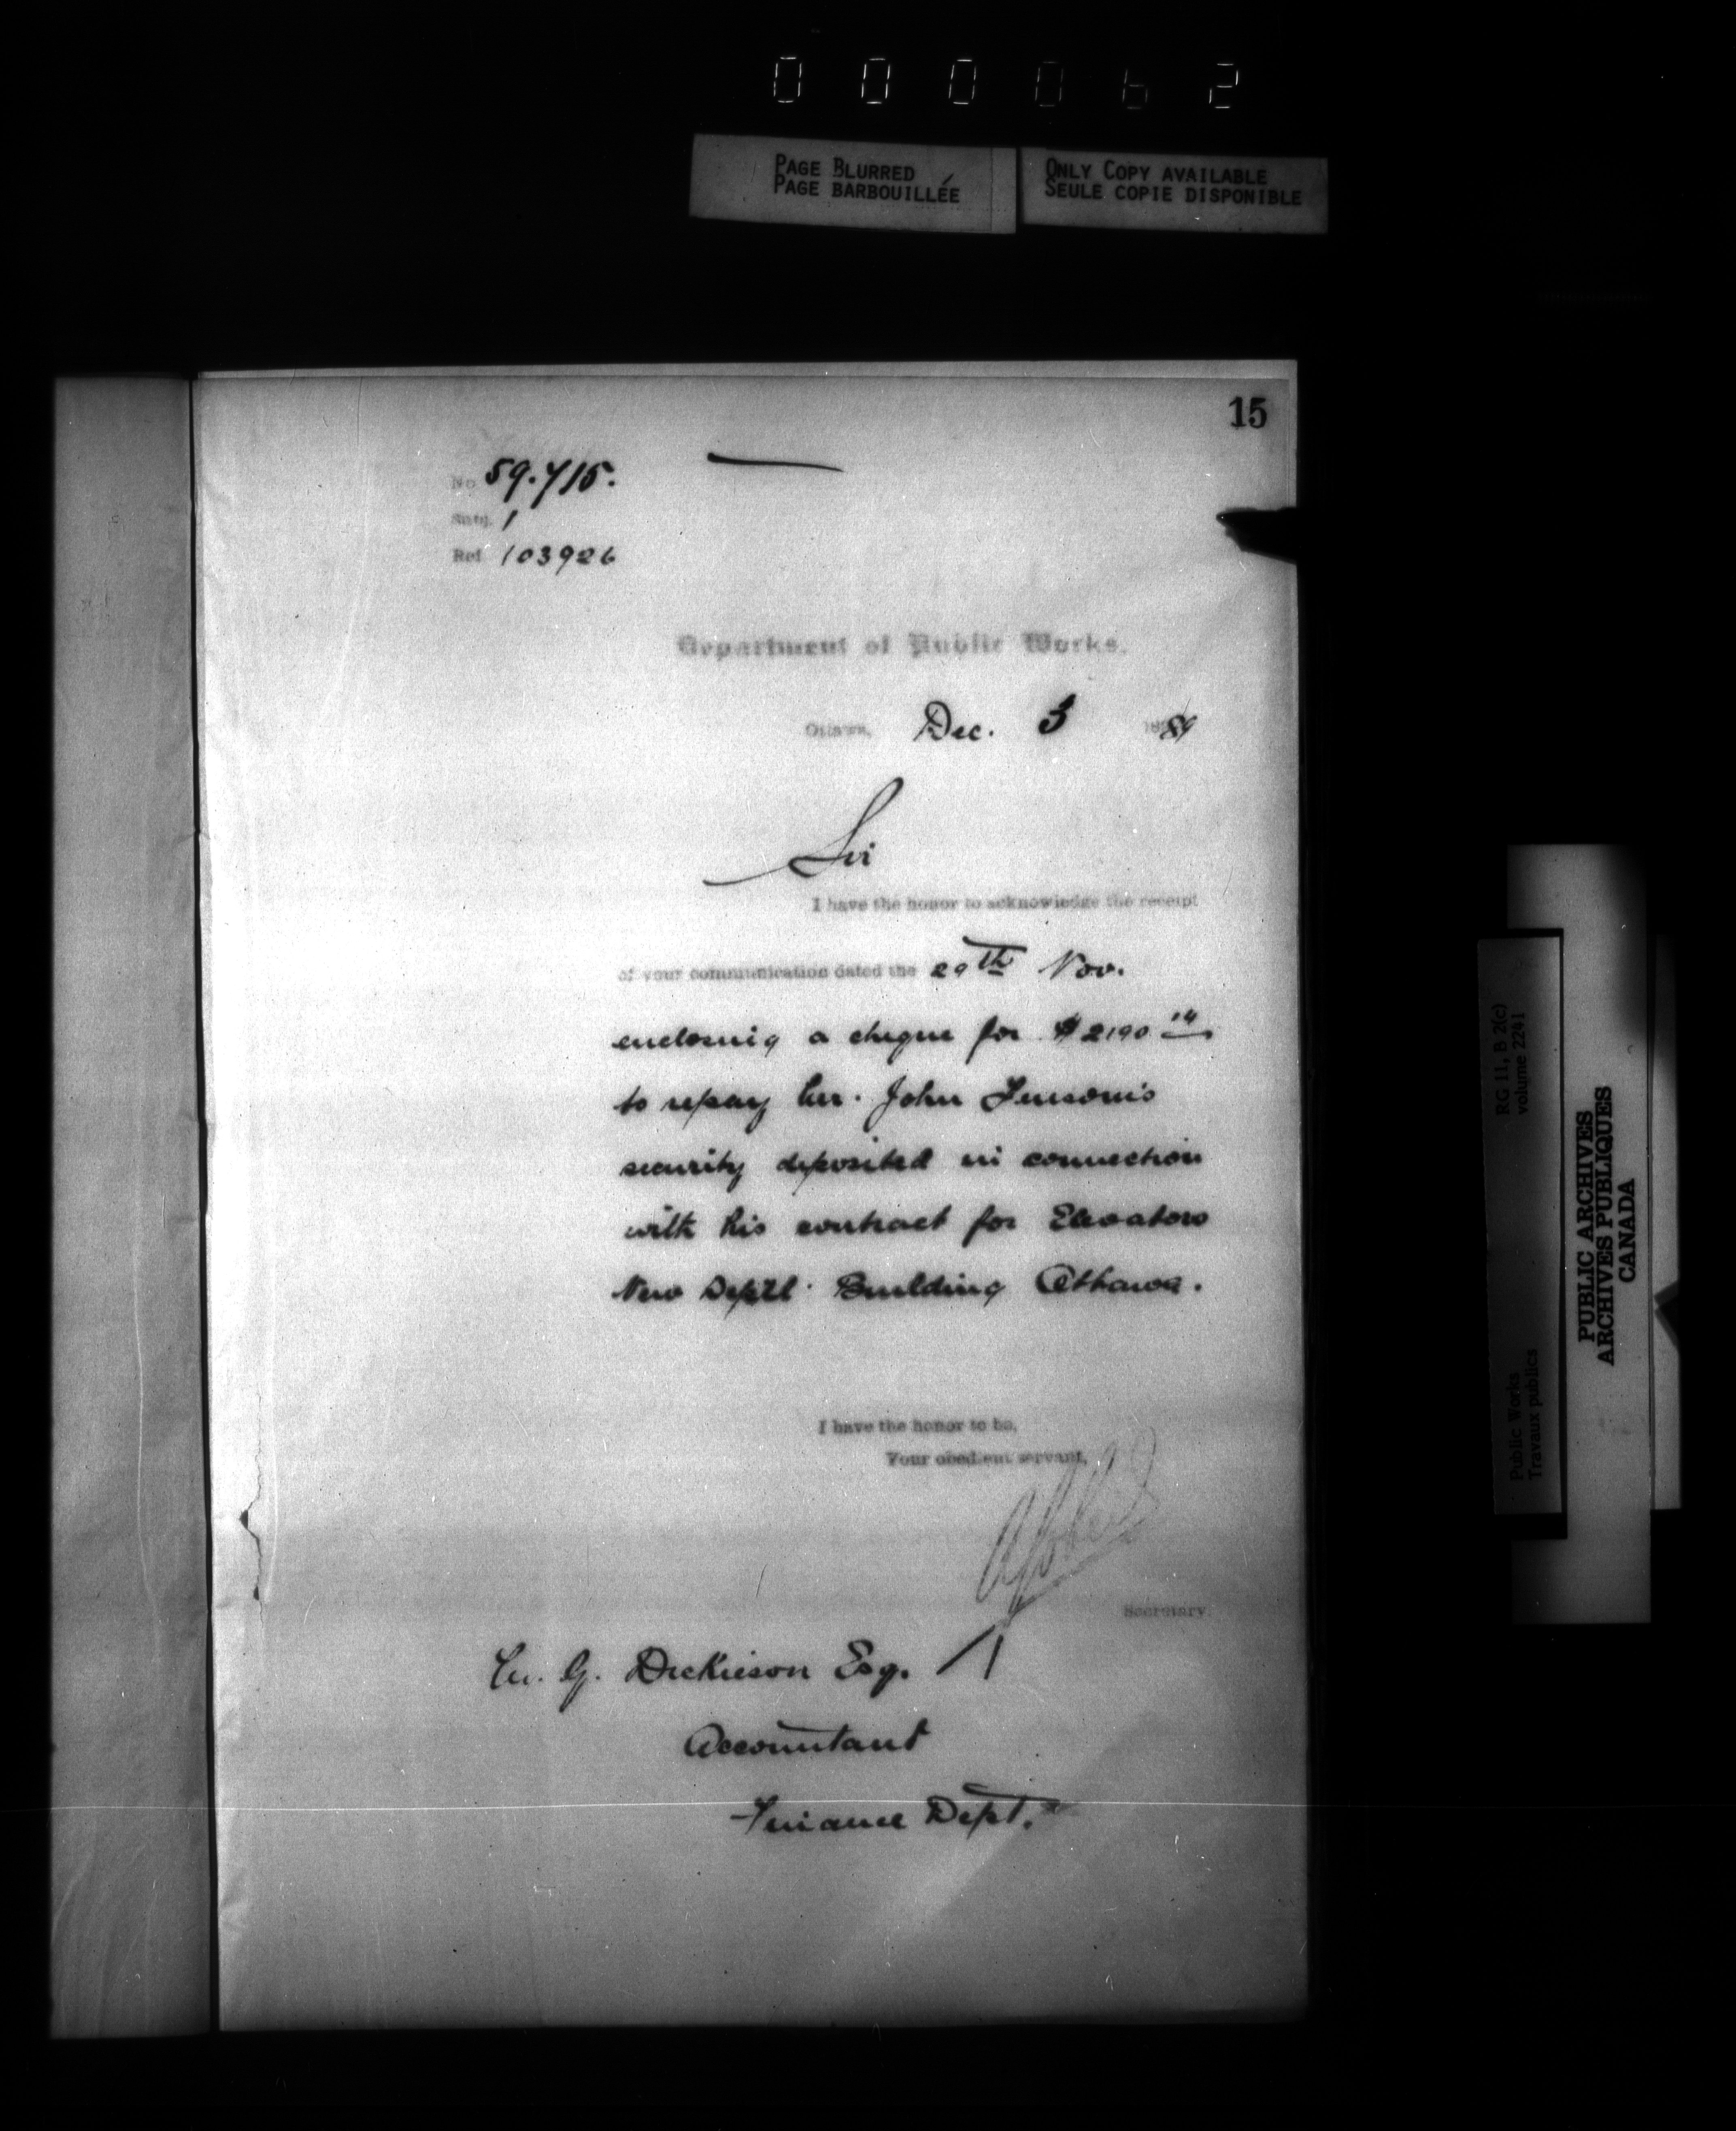 000062
PAGE BLURRED
PAGE BARBOUILLÉE
ONLY COPY AVAILABLE
SEULE COPIE DISPONIBLE
15
No 59.715.
Subj. 1
Ref 103926
Department of Public Works.
Ottawa, Dec. 3 1889
Sir
I have the honor to acknowledge the receipt
of your communication dated the 29th Nov.
enclosing a cheque for $2190 14
to repay Mr. John Fensom's
security deposited in connection
with his contract for Elevators
New Deptl Building Ottawa.
I have the honor to be,
Your obedient servant,
Secretary
M. G. Dickieson Esq.
Accountant
Finance Dept.
RG 11, B 2(c)
volume 2241
Public Works
Travaux publics
PUBLIC ARCHIVES
ARCHIVES PUBLIQUES
CANADA